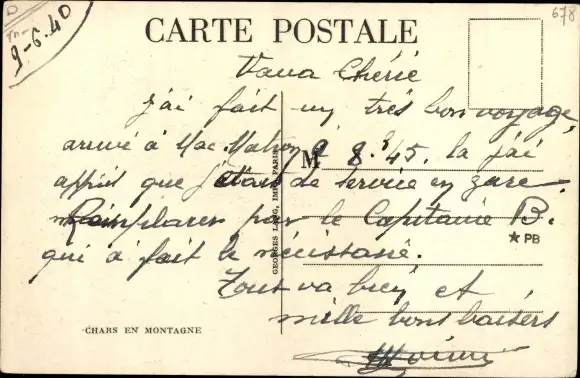 678
9-6.40
CARTE POSTALE
Chérie
j'ai fait un très bon voyage,
arrivé à Mac Mahon 8h45. la j'ai
M
appris que j'étais de service en gare.
Remplacer par le Capitaine B.
qui a fait le nécessaire.
Tout va bien et
mille bons baisers
★ PB
GEORGES LANG, IMP. PARIS
CHARS EN MONTAGNE